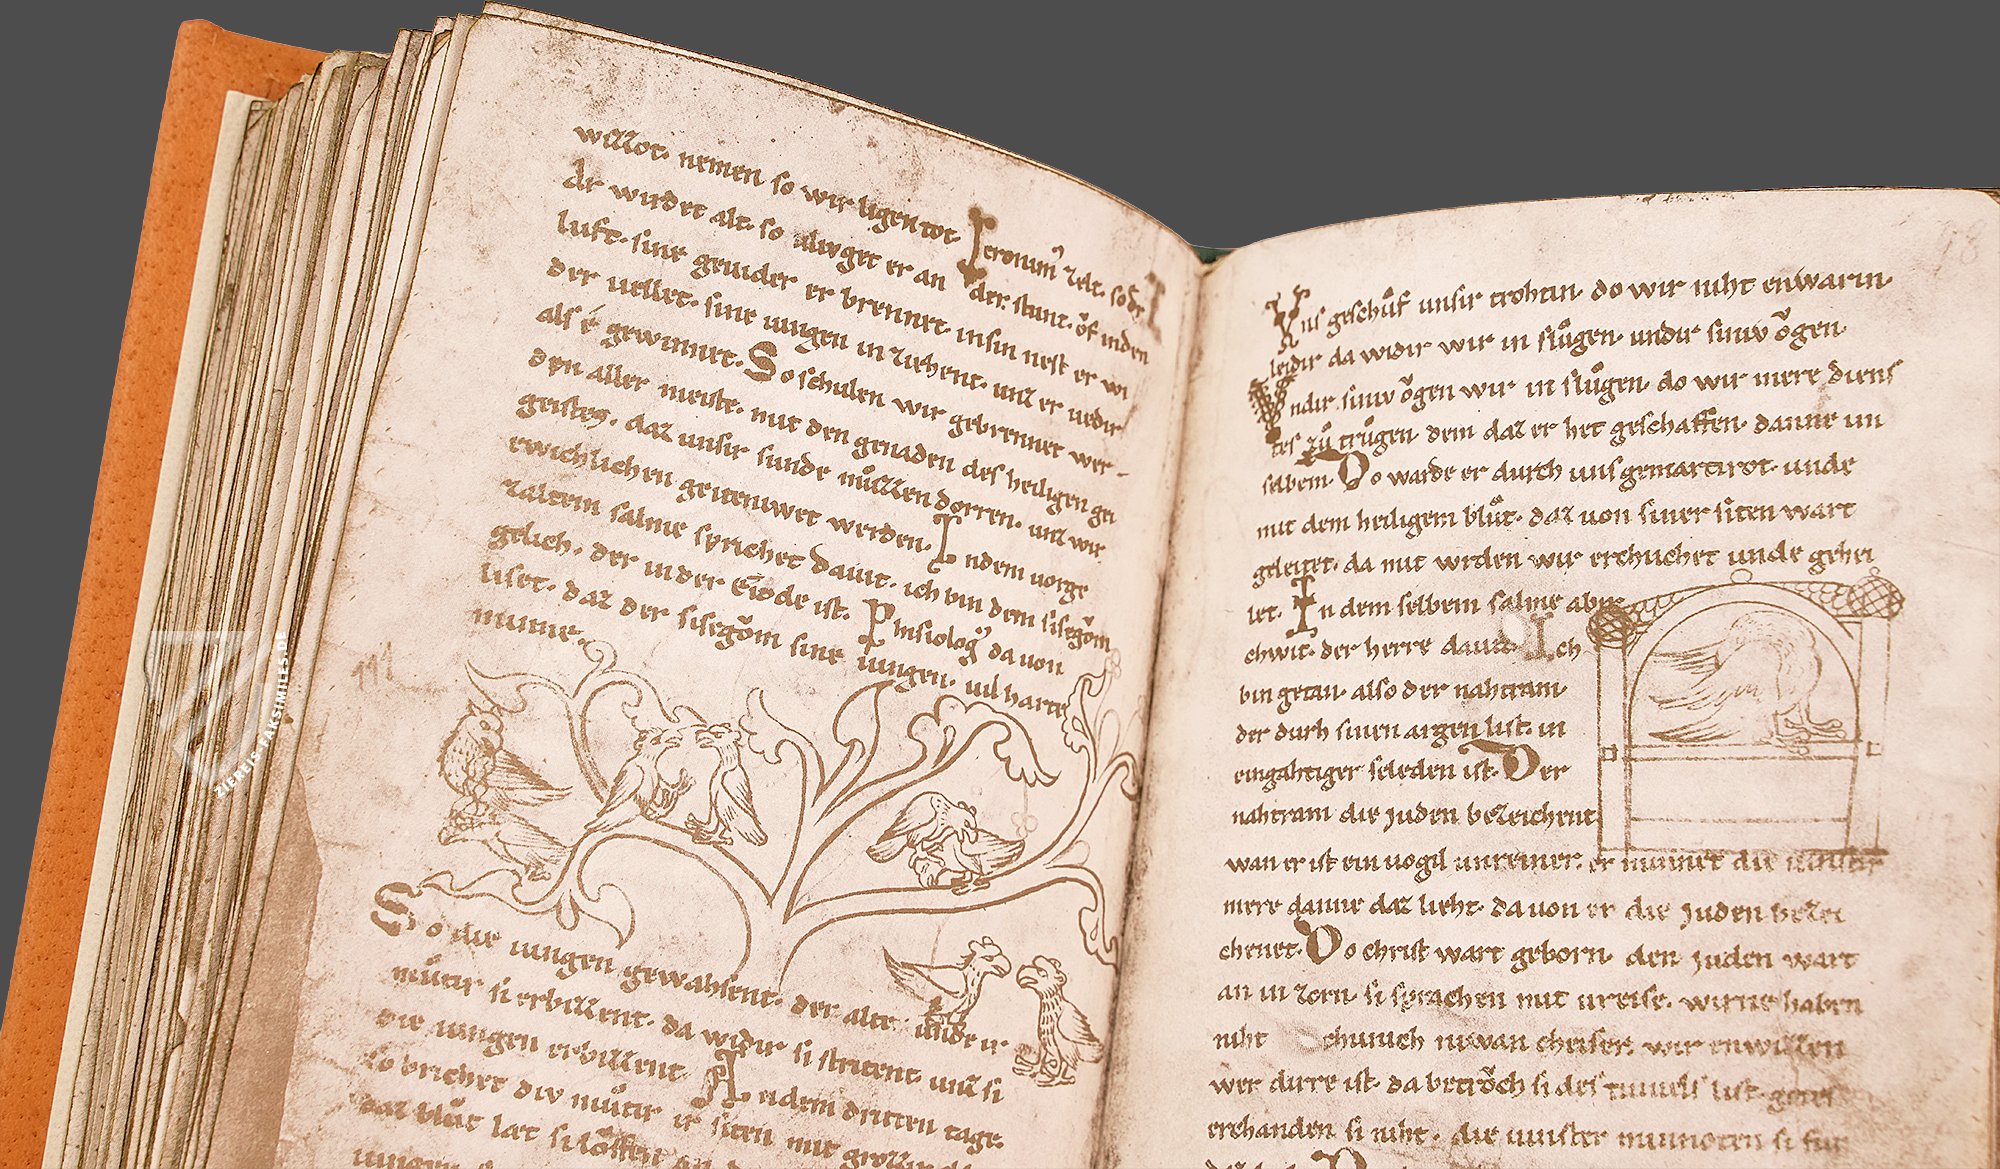 wizzot. nemen so wir ligen tot. Ieronim᷎ zelt. so der
Ar wirdet alt. so alwget er an der stunt. ůf in den
luft. sine geuider er brennet. in sin nest er wi
der uellet. sine iungen in ziehent. unz er uedir
als é gewinnet. So schulen wir gebrennet wer-
den aller meiste. mit den genaden des heiligen gei
geistes. daz unsir sunde můzzen dorren. unz wir
ewichlichen geiteniwet werden. In dem uorge
zaltem salme sprichet Dauit. ich bin dem sisegǒm
gelich. der in der Einǒde ist. Phisiolog᷎ da uon
liset. daz der sisegǒm sine iungen. uil harte
minne.
So die iungen gewahsent. der alte unde ir
můtir si erbizzent. da widir si stritent. unz si
die iungen erbizzent. An dem dritten tage.
so brichet div můtir ir siten mit
daz blůt læt si
iungen
Vns geschůf unsir trohtin. do wir niht enwarin.
leidir da widir wir in slůgen. undir siniv ǒgen.
Vndir siniv ǒgen wir in slůgen. do wir mere diens
tes zů trůgen. dem daz er het geschaffen. danne im
selbem. Do warde er durch uns gemartirot. unde
mit dem heiligem blůt. daz uon siner siten wart
geleitet. da mit wrden wir erchuchet unde gehei
let. In dem selbem salme abir
chwit. der herre dauit. Ich
bin getan. also der nahtram.
der durh sinen argen list. in
eingahtiger seleden ist. Der
nahtram die Juden bezeichent.
wan er ist ein uogil unreiner. er minnet die uinstir
mere danne daz lieht. da uon er die Juden bezei
chenet. Do christ wart geborn. den Juden wart
an in zorn. si sprachen mit ureise. wirne haben
niht chunich niwan cheiser. wir enwizzen
wer dirre ist. da betrǒch si des tiuuels list. gotes
erchanden si niht. die uinster minnoten si fur
ZIEREIS-FAKSIMILES.DE